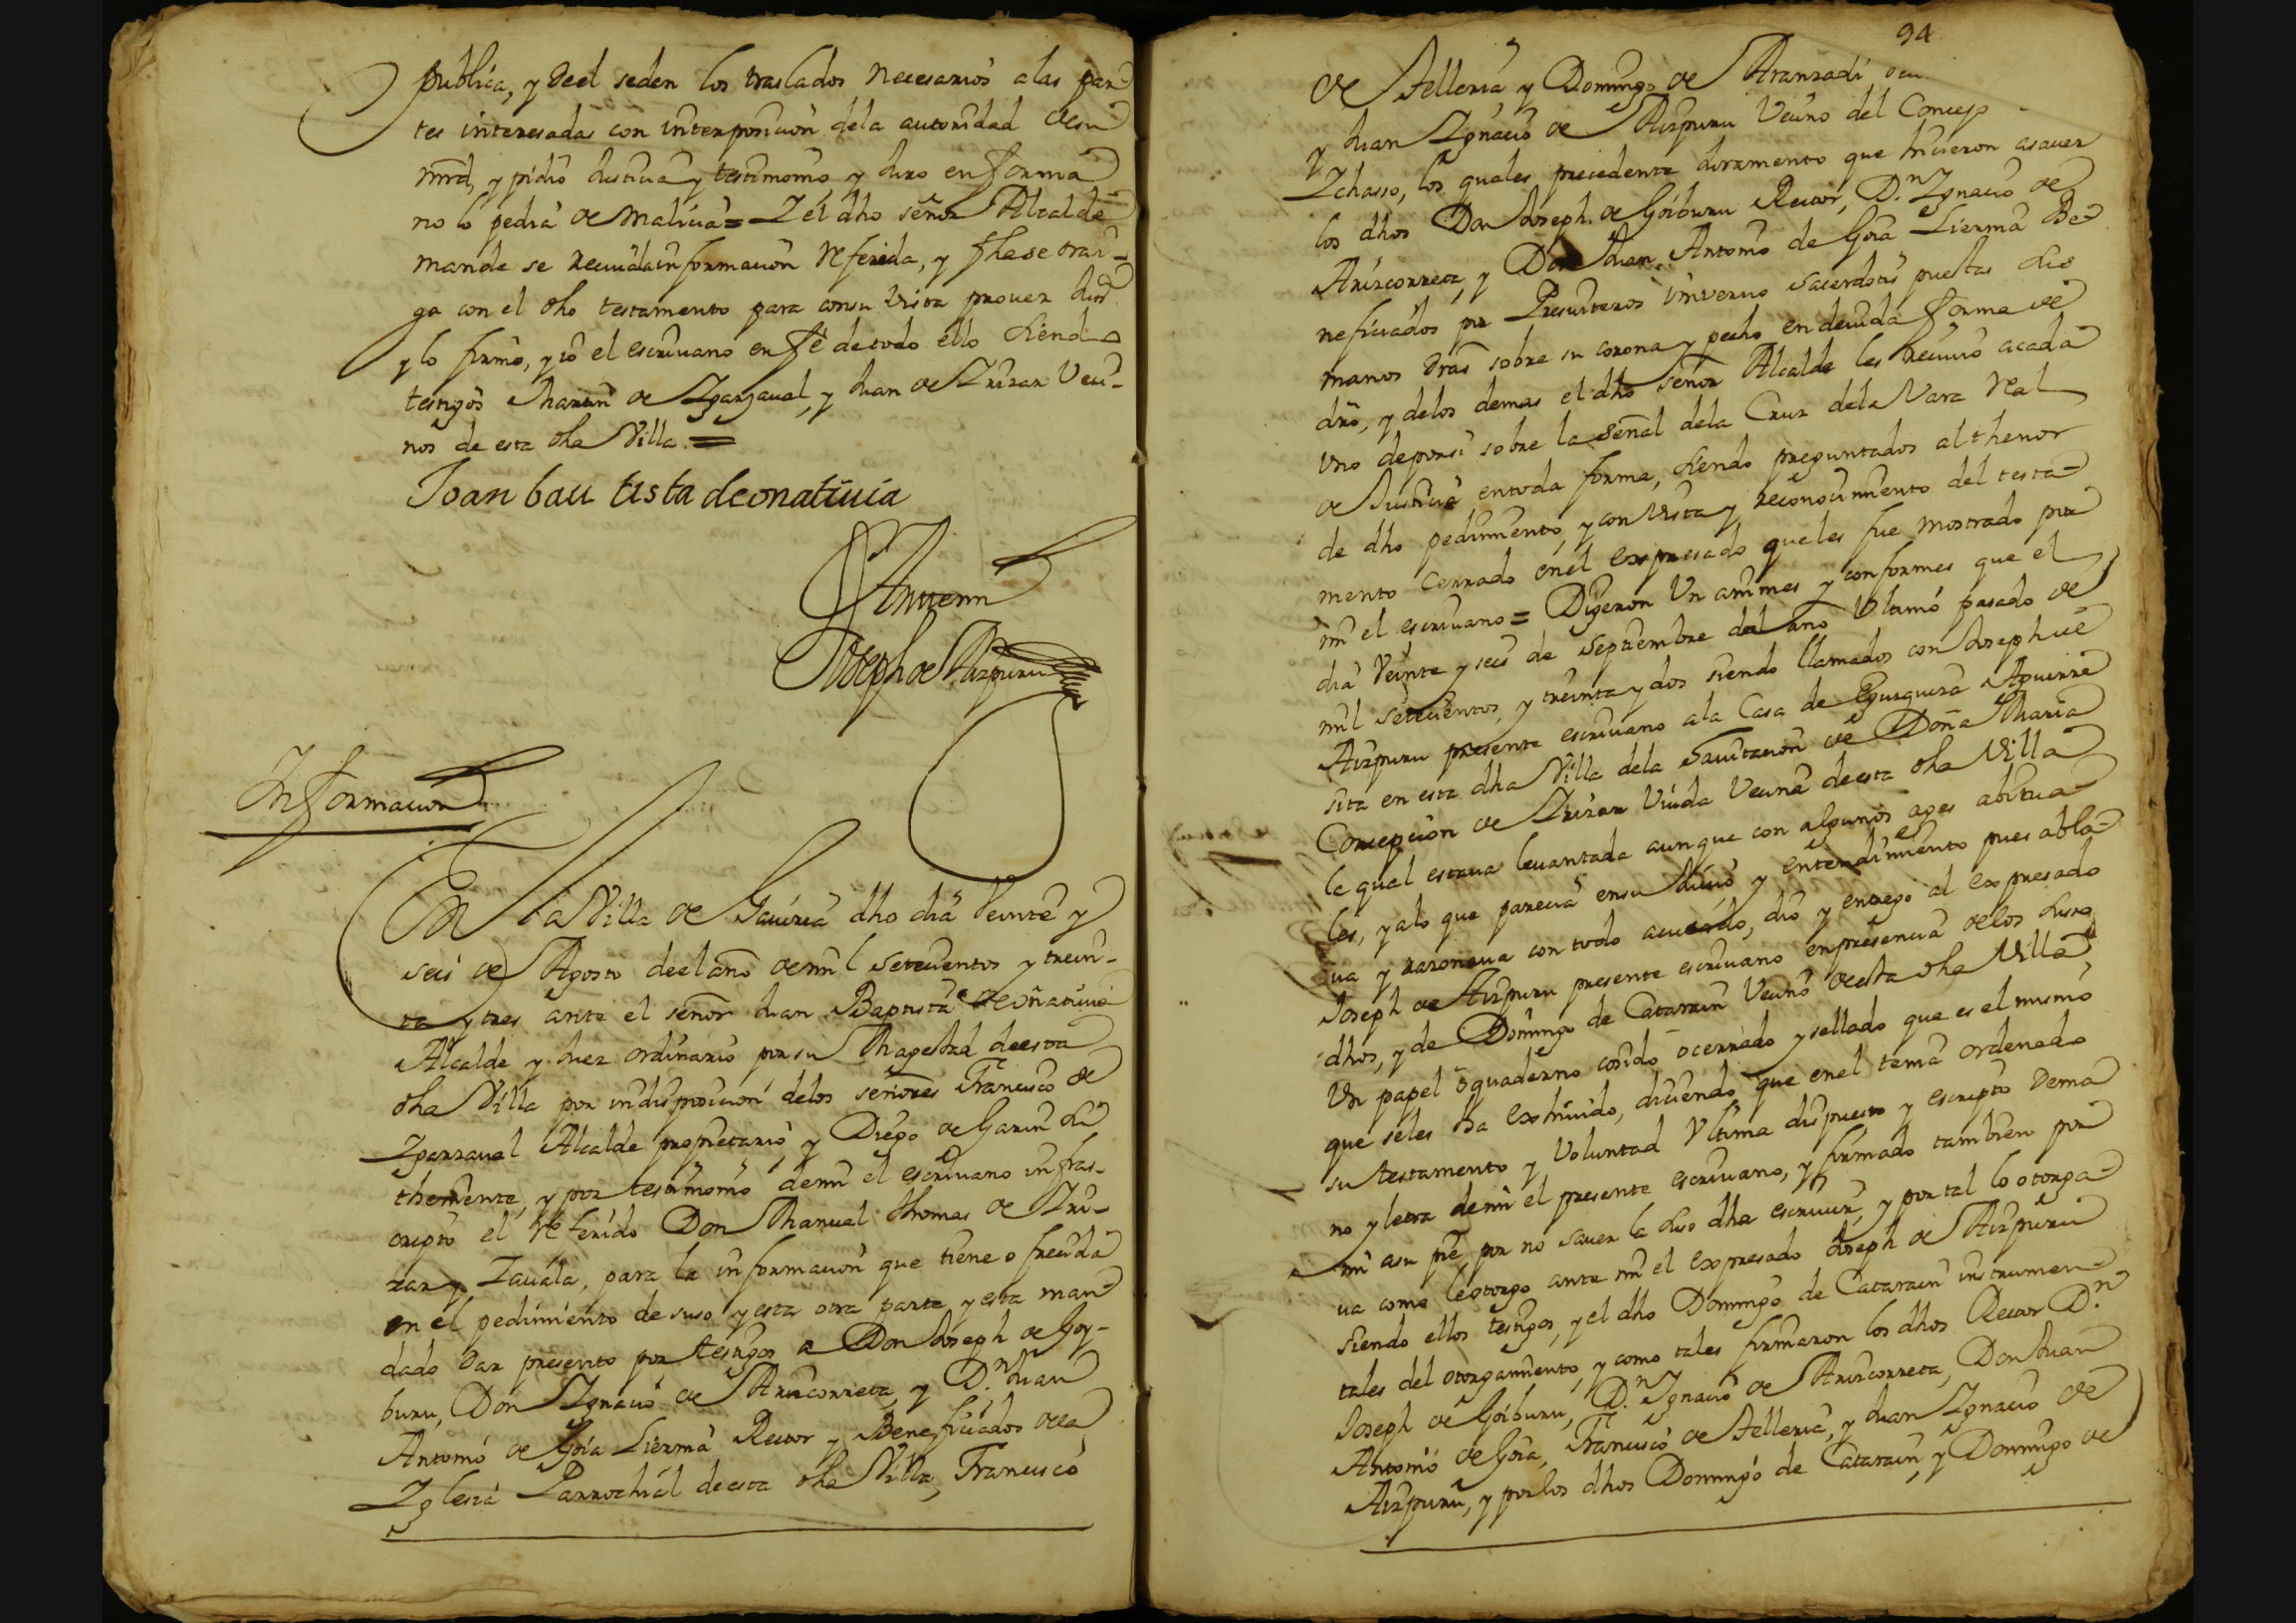 publica, y deel seden los traslados necesarios alas par-
tes interesadas con interposicion dela autoridad desu
mrd, y pidio Justicia y testimonio, y Juro en forma
no lo pedia de malicia = I el dho señor Alcalde
mando se reciuda informacion referida, y fha se trai-
ga con el dho testamento para consu vista prouer Just
y lo firmo, y io el escriuano en fe de todo ello siendo
testigos Martin de Igarzaual, y Juan de Irizar Veci-
nos de esta dha Villa =
Joan bau tista deonatiuia
Ante mi
Joseph de Aizpuru
Informacion
En la Villa de Gauiria dho dia Veinte y
seis de Agosto deel año de mil setecientos y trein-
ta y tres ante el señor Juan Baptista de oñatiuia
Alcalde y Juez ordinario por su Magestad deesta
dha Villa por indisposicion delos señores Francisco de
Igarzaual Alcalde propietario, y Diego de Garin su
theniente, y por testimonio demi el escriuano infras-
cripto el referido Don Manuel thomas de Iri-
zar y Zauala, para la informacion que tiene ofrecida
en el pedimiento de suso y esta otra parte y esta man
dado dar presento por testigos a Don Joseph de Goy-
buru, Don Ignacio de Arizcorreta, y D.n Juan
Antonio de Goia Lierma Rector y Beneficiados dela
Iglesia Parrochial deesta dha Villa, Francisco
94
de Telleria, y Domingo de Aranzadi
y Juan Ignacio de Aizpuru Vecino del Concejo
Ichasso, los quales precedente Juramento que hicieron asauer
los dhos Don Joseph de Goiburu Rector, D.n Ignacio de
Arizcorreta, y Don Juan Antonio de Goia Lierma Be-
neficiados por Presuiteros inverno sacerdotis puestas sus
manos dras sobre su corona y pecho en deuida forma de
dro, y delos demas el dho señor Alcalde les reciuio acada
uno deporsi sobre la señal dela Cruz dela Vara real
de Justicia entoda forma, siendo preguntados al thenor
de dho pedimiento, y con vista y reconocimiento del testa-
mento cerrado enel expresado queles fue mostrado por
mi el escriuano = Digeron Un animes y conformes que el
dia Veinte y seis de septiembre del año Ultimo pasado de
mil setecientos, y treinta y dos siendo llamados con Joseph de
Aizpuru presente escriuano ala Casa de Eguzquiza Aguirre
sita en esta dha Villa dela hauitacion de Doña Maria
Concepcion de Irizar Viuda Vecina deesta dha Villa
la qual estaua leuantada aunque con algunos ages abitua-
les, y alo que parecia ensu Juicio y entendimiento pues abla-
ua y razonaua con todo acuerdo, dio y entrego al expresado
Joseph de Aizpuru presente escriuano enpresencia delos suso
dhos, y de Domingo de Catarain Vecino deesta dha Villa
Un papel o quaderno cosido o cerrado y sellado que es el mismo
que seles ha exhiuido, diciendo que enel tenia ordenado
su testamento y Voluntad Ultima dispuesto y escripto dema
no y letra demi el presente escriuano, y firmado tambien por
mi asu pre por no sauer la suso dha escriuir, y por tal lo otorga-
ua como leotorgo ante mi el expresado Joseph de Aizpuru
siendo ellos testigos, y el dho Domingo de Catarain instrumen-
tales del otorgamiento, y como tales firmaron los dhos Rector D.n
Joseph de Goiburu, D.n Ignacio de Arizcorreta, Don Juan
Antonio de Goia, Francisco de Telleria, y Juan Ignacio de
Aizpuru, y por los dhos Domingo de Catarain, y Domingo de